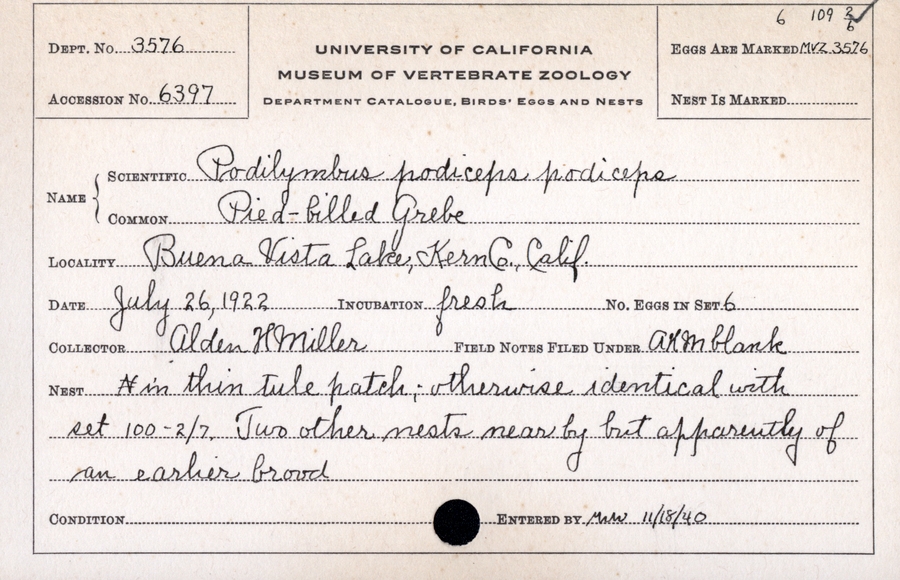 6 109 2/6
Dept. No. 3576
UNIVERSITY OF CALIFORNIA
Eggs Are Marked MVZ 3576
MUSEUM OF VERTEBRATE ZOOLOGY
Accession No. 6397
Department Catalogue, Birds' Eggs and Nests
Nest Is Marked
Name { Scientific Podilymbus podiceps podiceps
Common Pied-billed Grebe
Locality Buena Vista Lake, Kern Co., Calif.
Date July 26, 1922 Incubation fresh No. Eggs in Set 6
Collector Alden H Miller Field Notes Filed Under AHM blank
Nest in thin tule patch; otherwise identical with
set 100-2/7. Two other nests near by but apparently of
an earlier brood
Condition Entered by 11/18/40